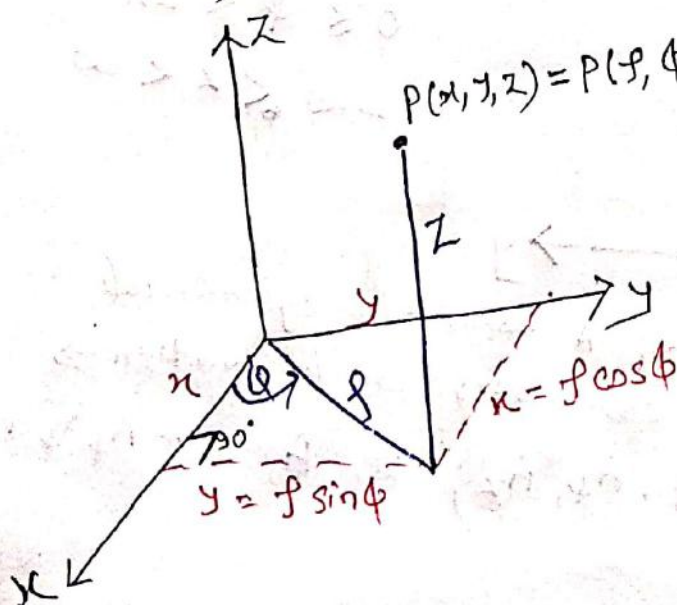 Z
P(x,y,z) = P(ρ, ϕ
Z
y
y
x
ϕ
ρ
x = ρ cosϕ
90°
y = ρ sinϕ
x